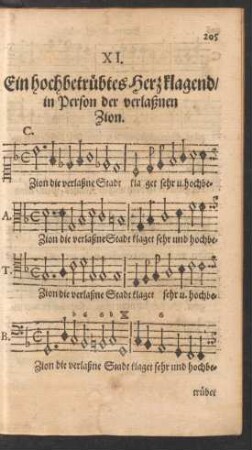 205
XI.
Ein hochbetrübtes Herz klagend/
in Person der verlaßnen
Zion.
C.
Zion die verlaßne Stadt kla get sehr u. hochbe-
A.
Zion die verlaßne Stadt klaget sehr und hochbe-
T.
Zion die verlaßne Stadt klaget sehr u. hochbe-
B.
Zion die verlaßne Stadt klaget sehr und hochbe-
trübet